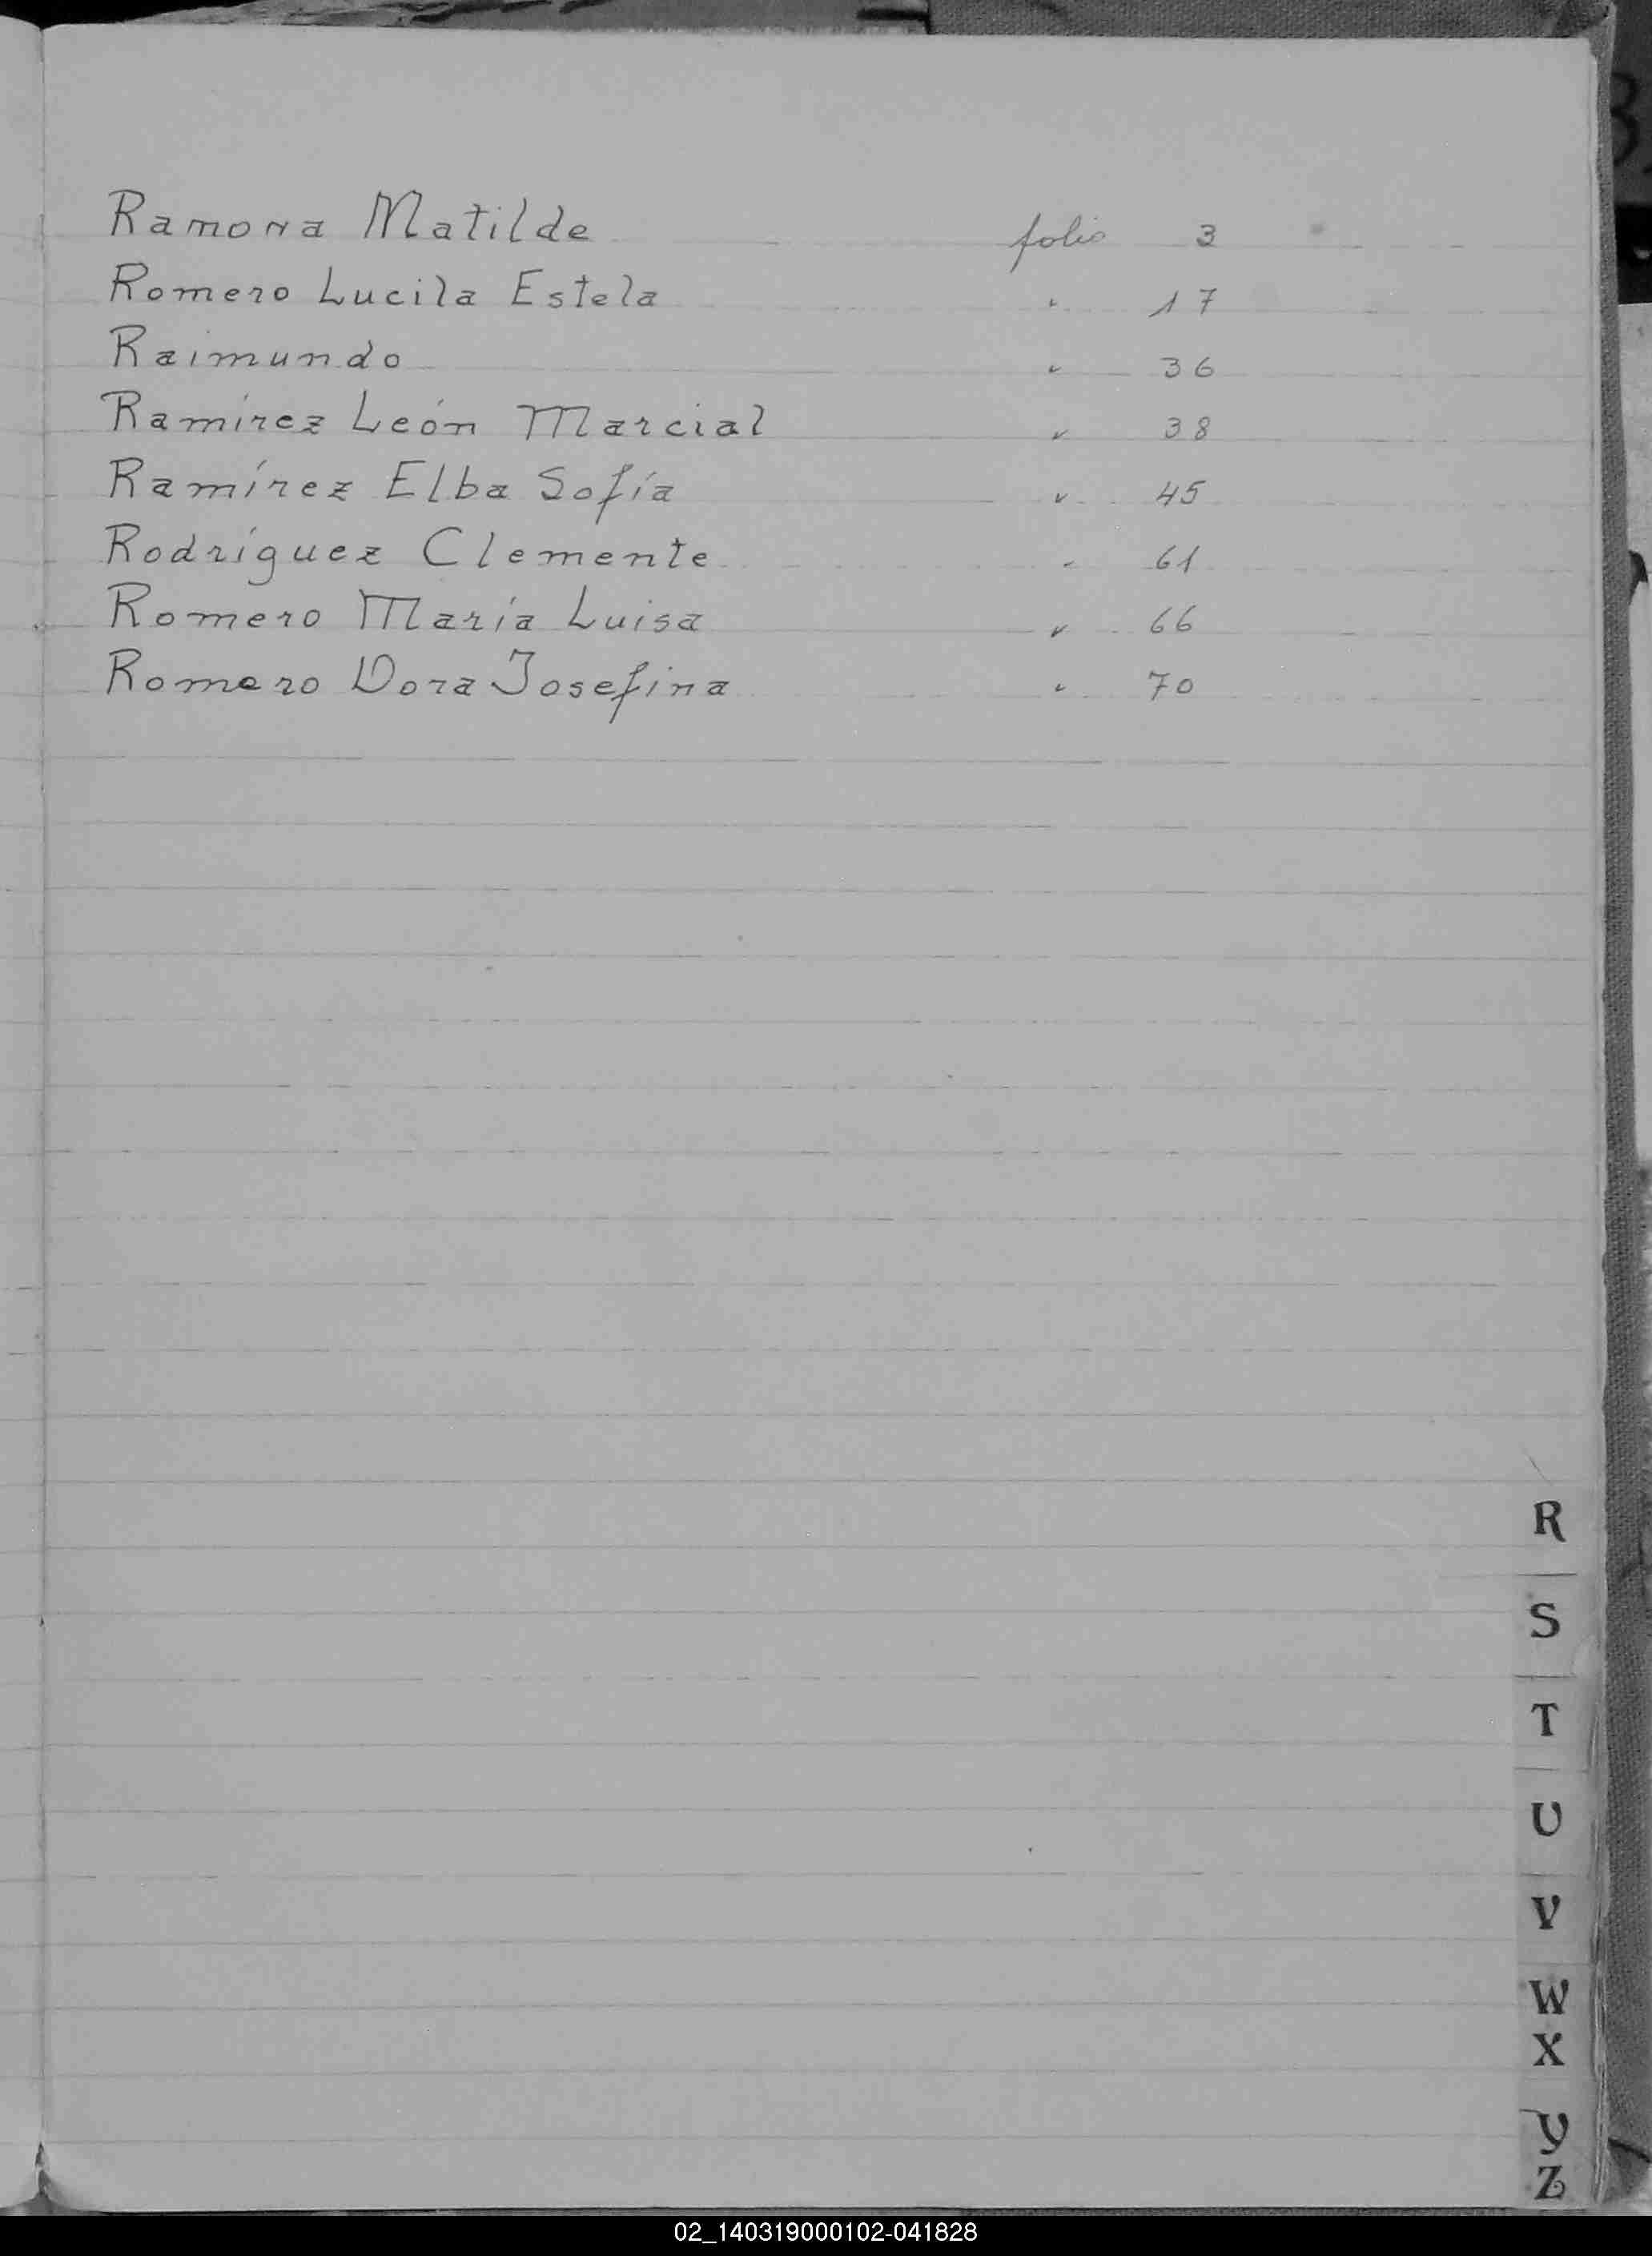 Ramona Matilde folio 3
Romero Lucila Estela " 17
Raimundo " 36
Ramírez León Marcial " 38
Ramírez Elba Sofía " 45
Rodríguez Clemente " 61
Romero María Luisa " 66
Romero Dora Josefina " 70
R
S
T
U
V
W
X
Y
Z
02_140319000102-041828